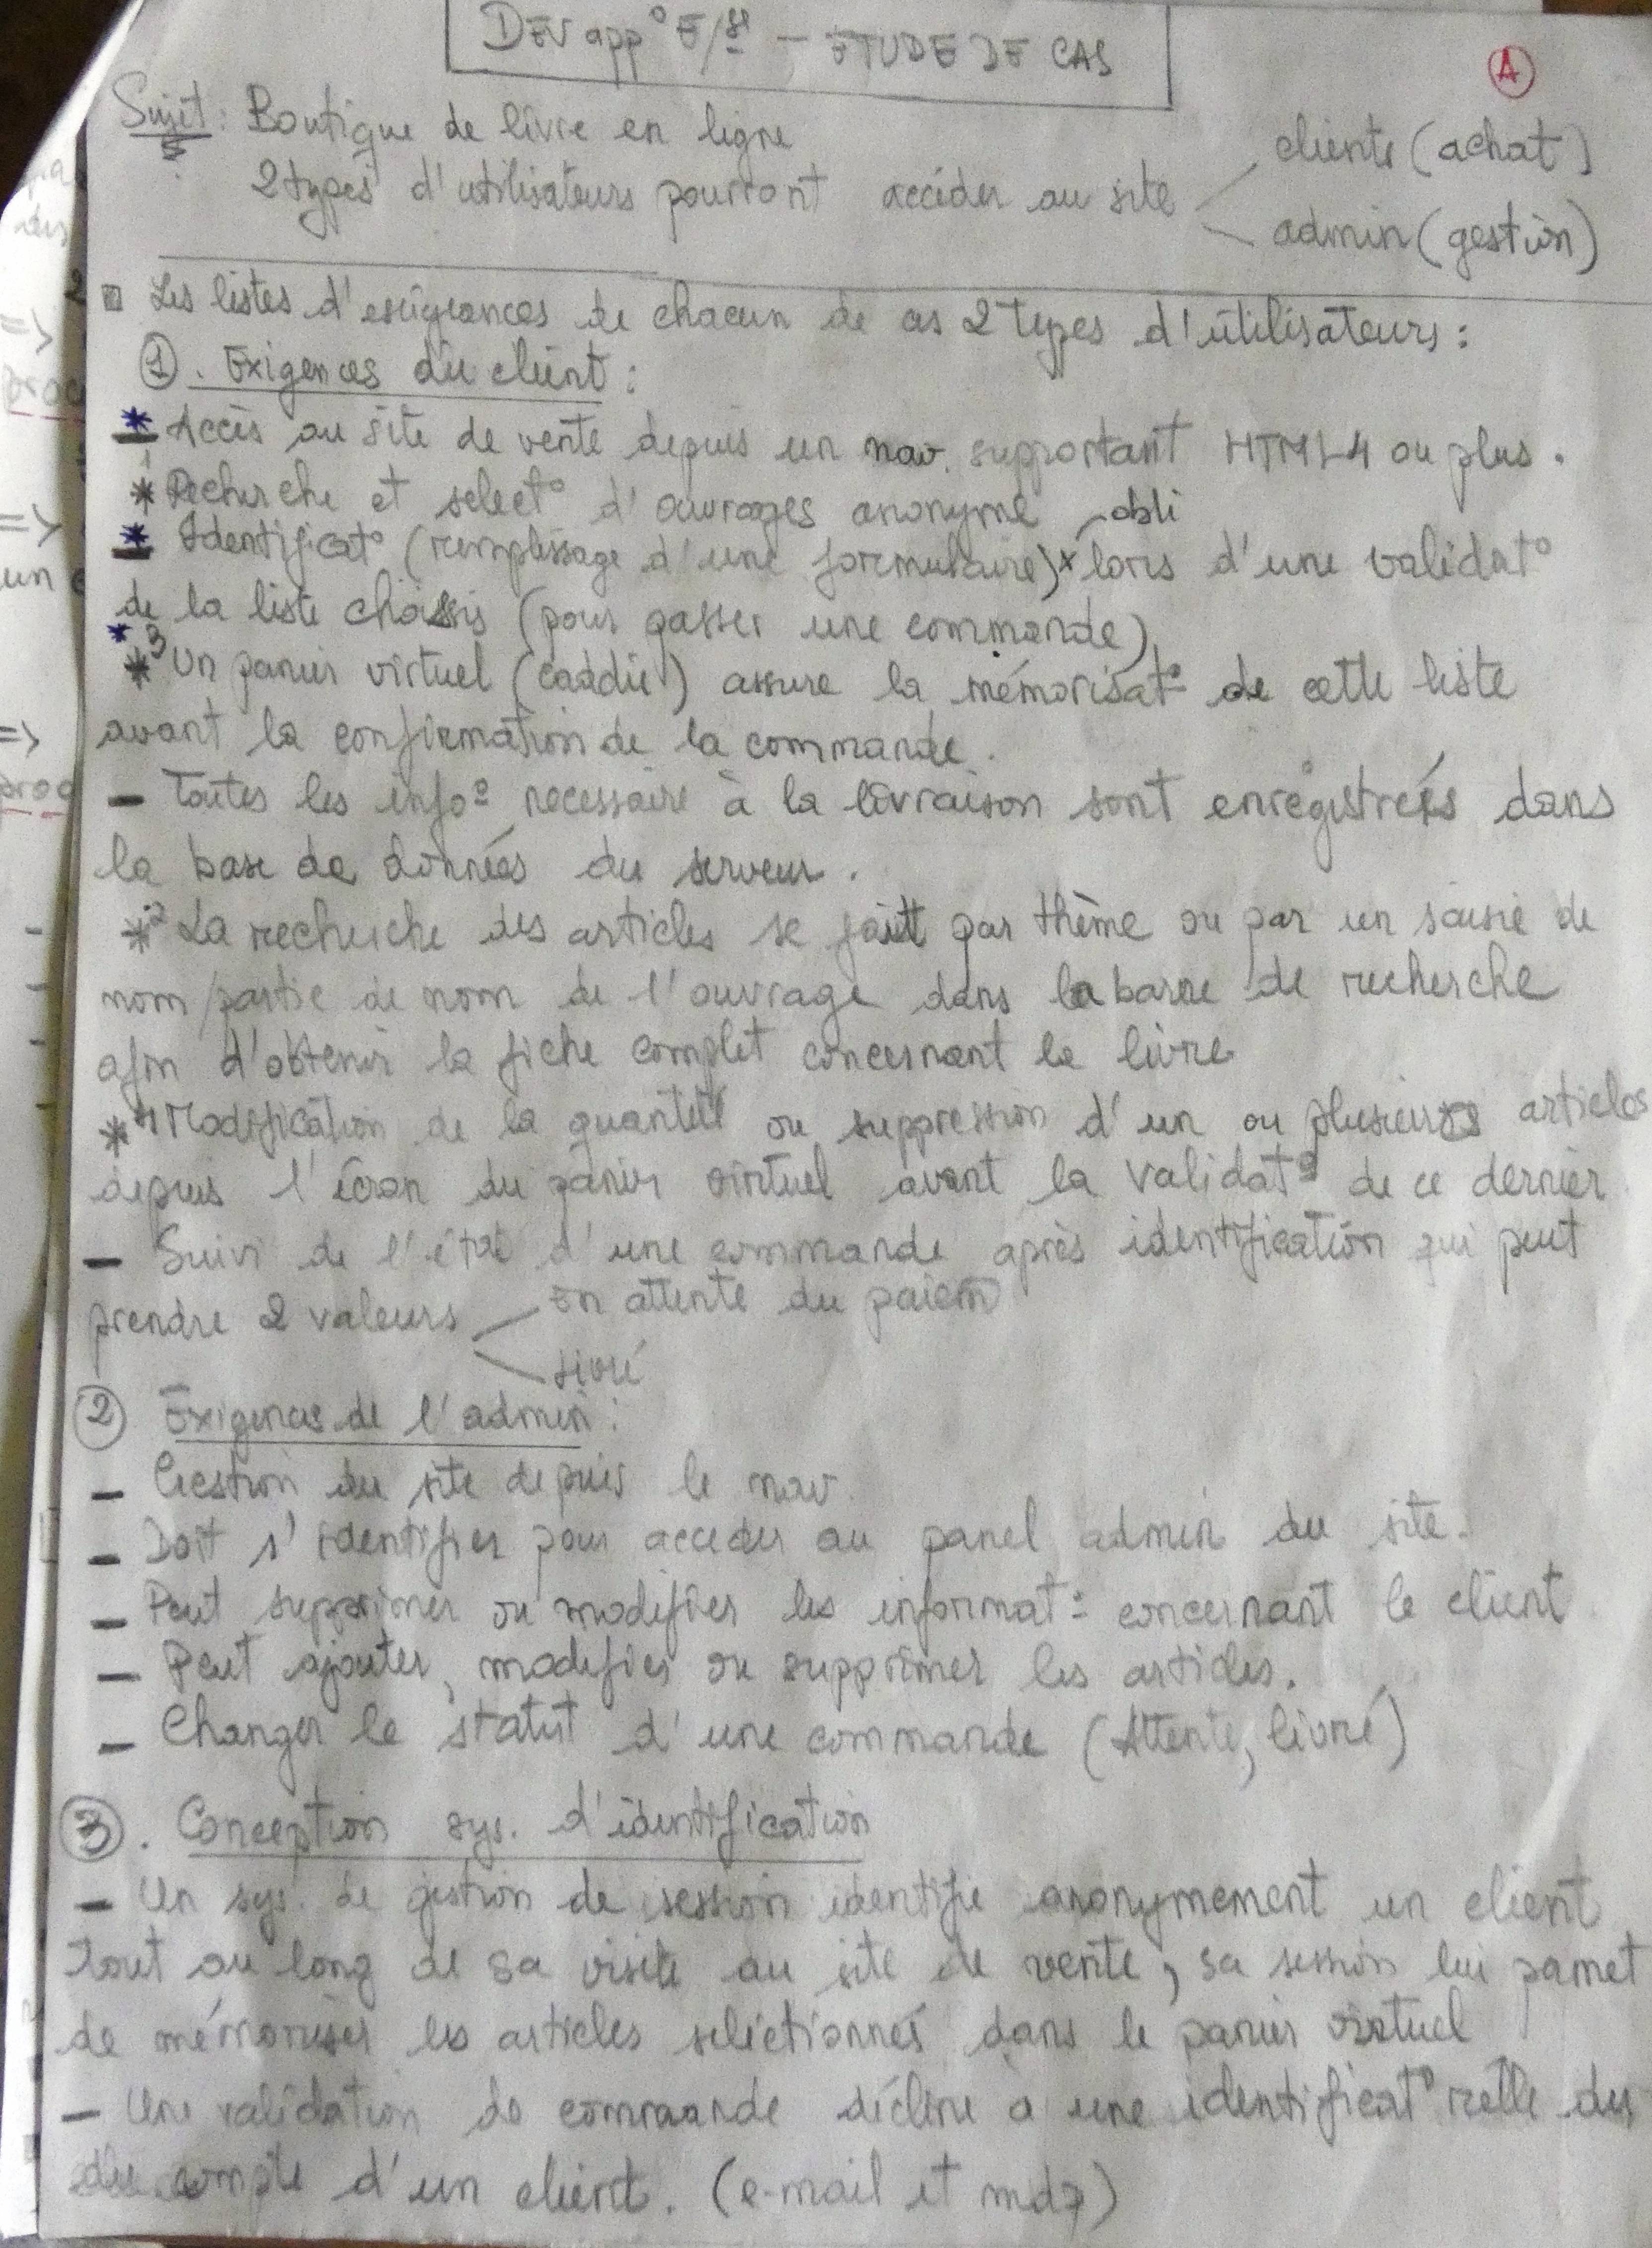 DEV app° E/se – ETUDE DE CAS
A
Sujet : Boutique de livre en ligne
2 types d'utilisateurs pourront accéder au site
clients (achat)
admin (gestion)
Les listes d'exigeances de chacun de ces 2 types d'utilisateurs :
1. Exigences du client :
* Accès au site de vente depuis un nav. supportant HTML4 ou plus.
*1 Recherche et select° d'ouvrages anonyme
obli
* Identificat° (remplissage d'une formulaire) x lors d'une validat°
de la liste choisis (pour passer une commande)
*3 Un panier virtuel (caddie) assure la mémorisat° de cette liste
avant la confirmation de la commande.
– Toutes les info° necessaire à la livraison sont enregistrées dans
la base de données du serveur.
*2 La recherche des articles se fait par thème ou par un saisie de
nom/partie de nom de l'ouvrage dans la barre de recherche
afin d'obtenir la fiche complet concernant le livre
*4 Modification de la quantité ou suppression d'un ou plusieurs articles
depuis l'écran du panier virtuel avant la validat° de ce dernier
– Suivi de l'état d'une commande après identification qui peut
prendre 2 valeurs
En attente du paiem
livré
2 Exigences de l'admin :
– Gestion du site depuis le nav.
– Doit s'identifier pour acceder au panel admin du site.
– Peut supprimer ou modifier les informat° concernant le client
– Peut ajouter, modifier ou supprimer les articles.
– Changer le statut d'une commande (Attente, livré)
3. Conception sys. d'identification
– Un sys. de gestion de session identifie anonymement un client
tout au long de sa visite au site de vente, sa session lui pamet
de mémoriser les articles selectionnés dans le panier virtuel
– Une validation de commande décline à une identificat° réelle du
du compte d'un client. (e-mail et mdp)